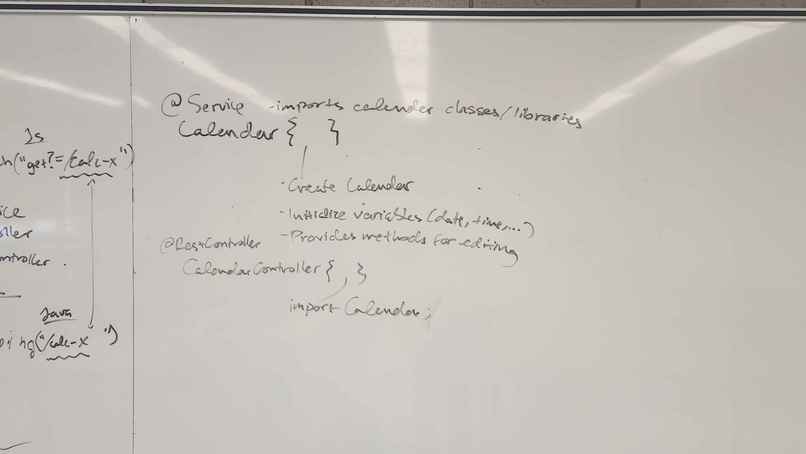 Js
("get?=/calc-x")
Java
ng("/calc-x")
@Service -imports calender classes/libraries
Calendar { }
· Create Calendar
- Initialize variables (date, time, ...)
- Provides methods for editing
@RestController
CalendarController { , }
import Calendar;